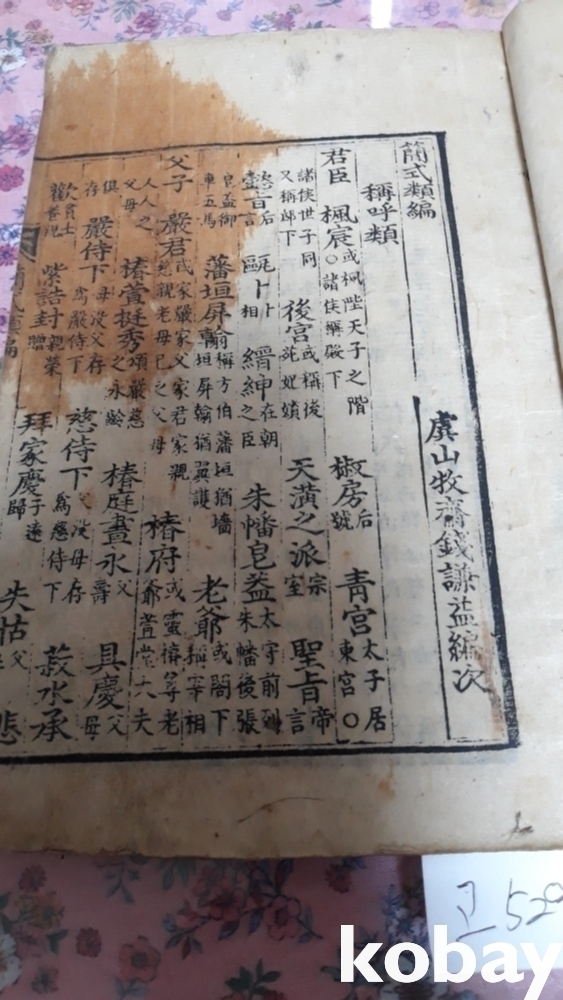 簡式類編
虞山牧齋錢謙益編次
稱呼類
君臣 楓宸○或楓陛天子之階諸侯稱殿下 椒房后號 青宮太子居東宮○
諸侯世子同又稱邸下 後宮或稱後 天潢之派宗室 聖旨帝言
懿旨后言 甌卜卜相 縉紳在朝之臣 朱幡皂盖太守前列朱幡後張
皂盖御車五馬 藩垣屏翰稱方伯藩垣猶墻垣屏翰猶翼護 老爺或閤下稱宰相
父子 嚴君或家嚴家父家君家親慈親老母己之父母 椿府或靈椿等老爺萱堂大夫
人人之父母 椿萱挺秀頌嚴慈之永齡 椿庭晝永父壽 具慶父母
俱存 嚴侍下母沒父存爲嚴侍下 慈侍下父沒母存爲慈侍下 菽水承
歡貧士養親 紫誥封贈親榮 拜家慶子遠歸 失怙父 悲
고 529
kobay